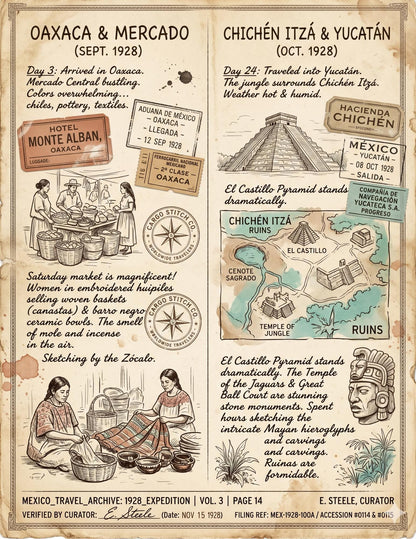 OAXACA & MERCADO
(SEPT. 1928)
Day 3: Arrived in Oaxaca.
Mercado Central bustling.
Colors overwhelming...
chiles, pottery, textiles.
HOTEL
MONTE ALBAN,
OAXACA
LUGGAGE:
ADUANA DE MÉXICO
- OAXACA -
- LLEGADA -
- 12 SEP 1928
FERROCARRIL NACIONAL
MEXICANO
2ª CLASE
OAXACA
CARGO STITCH CO.
WORLDWIDE TRAVELERS
Saturday market is magnificent!
Women in embroidered huipiles
selling woven baskets
(canastas) & barro negro
ceramic bowls. The smell
of mole and incense
in the air.
Sketching by the Zócalo.
CARGO STITCH CO.
WORLDWIDE TRAVELERS
CHICHÉN ITZÁ & YUCATÁN
(OCT. 1928)
Day 24: Traveled into Yucatán.
The jungle surrounds Chichén Itzá.
Weather hot & humid.
HACIENDA
CHICHÉN
MÉXICO
- YUCATÁN -
- 08 OCT 1928
- SALIDA -
COMPAÑÍA DE
NAVEGACIÓN
YUCATECA S.A.
PROGRESO
El Castillo Pyramid stands
dramatically.
CHICHÉN ITZÁ
RUINS
EL CASTILLO
CENOTE
SAGRADO
TEMPLE OF
JUNGLE
RUINS
El Castillo Pyramid stands
dramatically. The Temple
of the Jaguars & Great
Ball Court are stunning
stone monuments. Spent
hours sketching the
intricate Mayan hieroglyphs
and carvings
and carvings.
Ruinas are
formidable.
MEXICO_TRAVEL_ARCHIVE: 1928_EXPEDITION | VOL. 3 | PAGE 14
E. STEELE, CURATOR
VERIFIED BY CURATOR: E. Steele (Date: NOV 15 1928)
FILING REF: MEX-1928-100A / ACCESSION #0114 & #0115